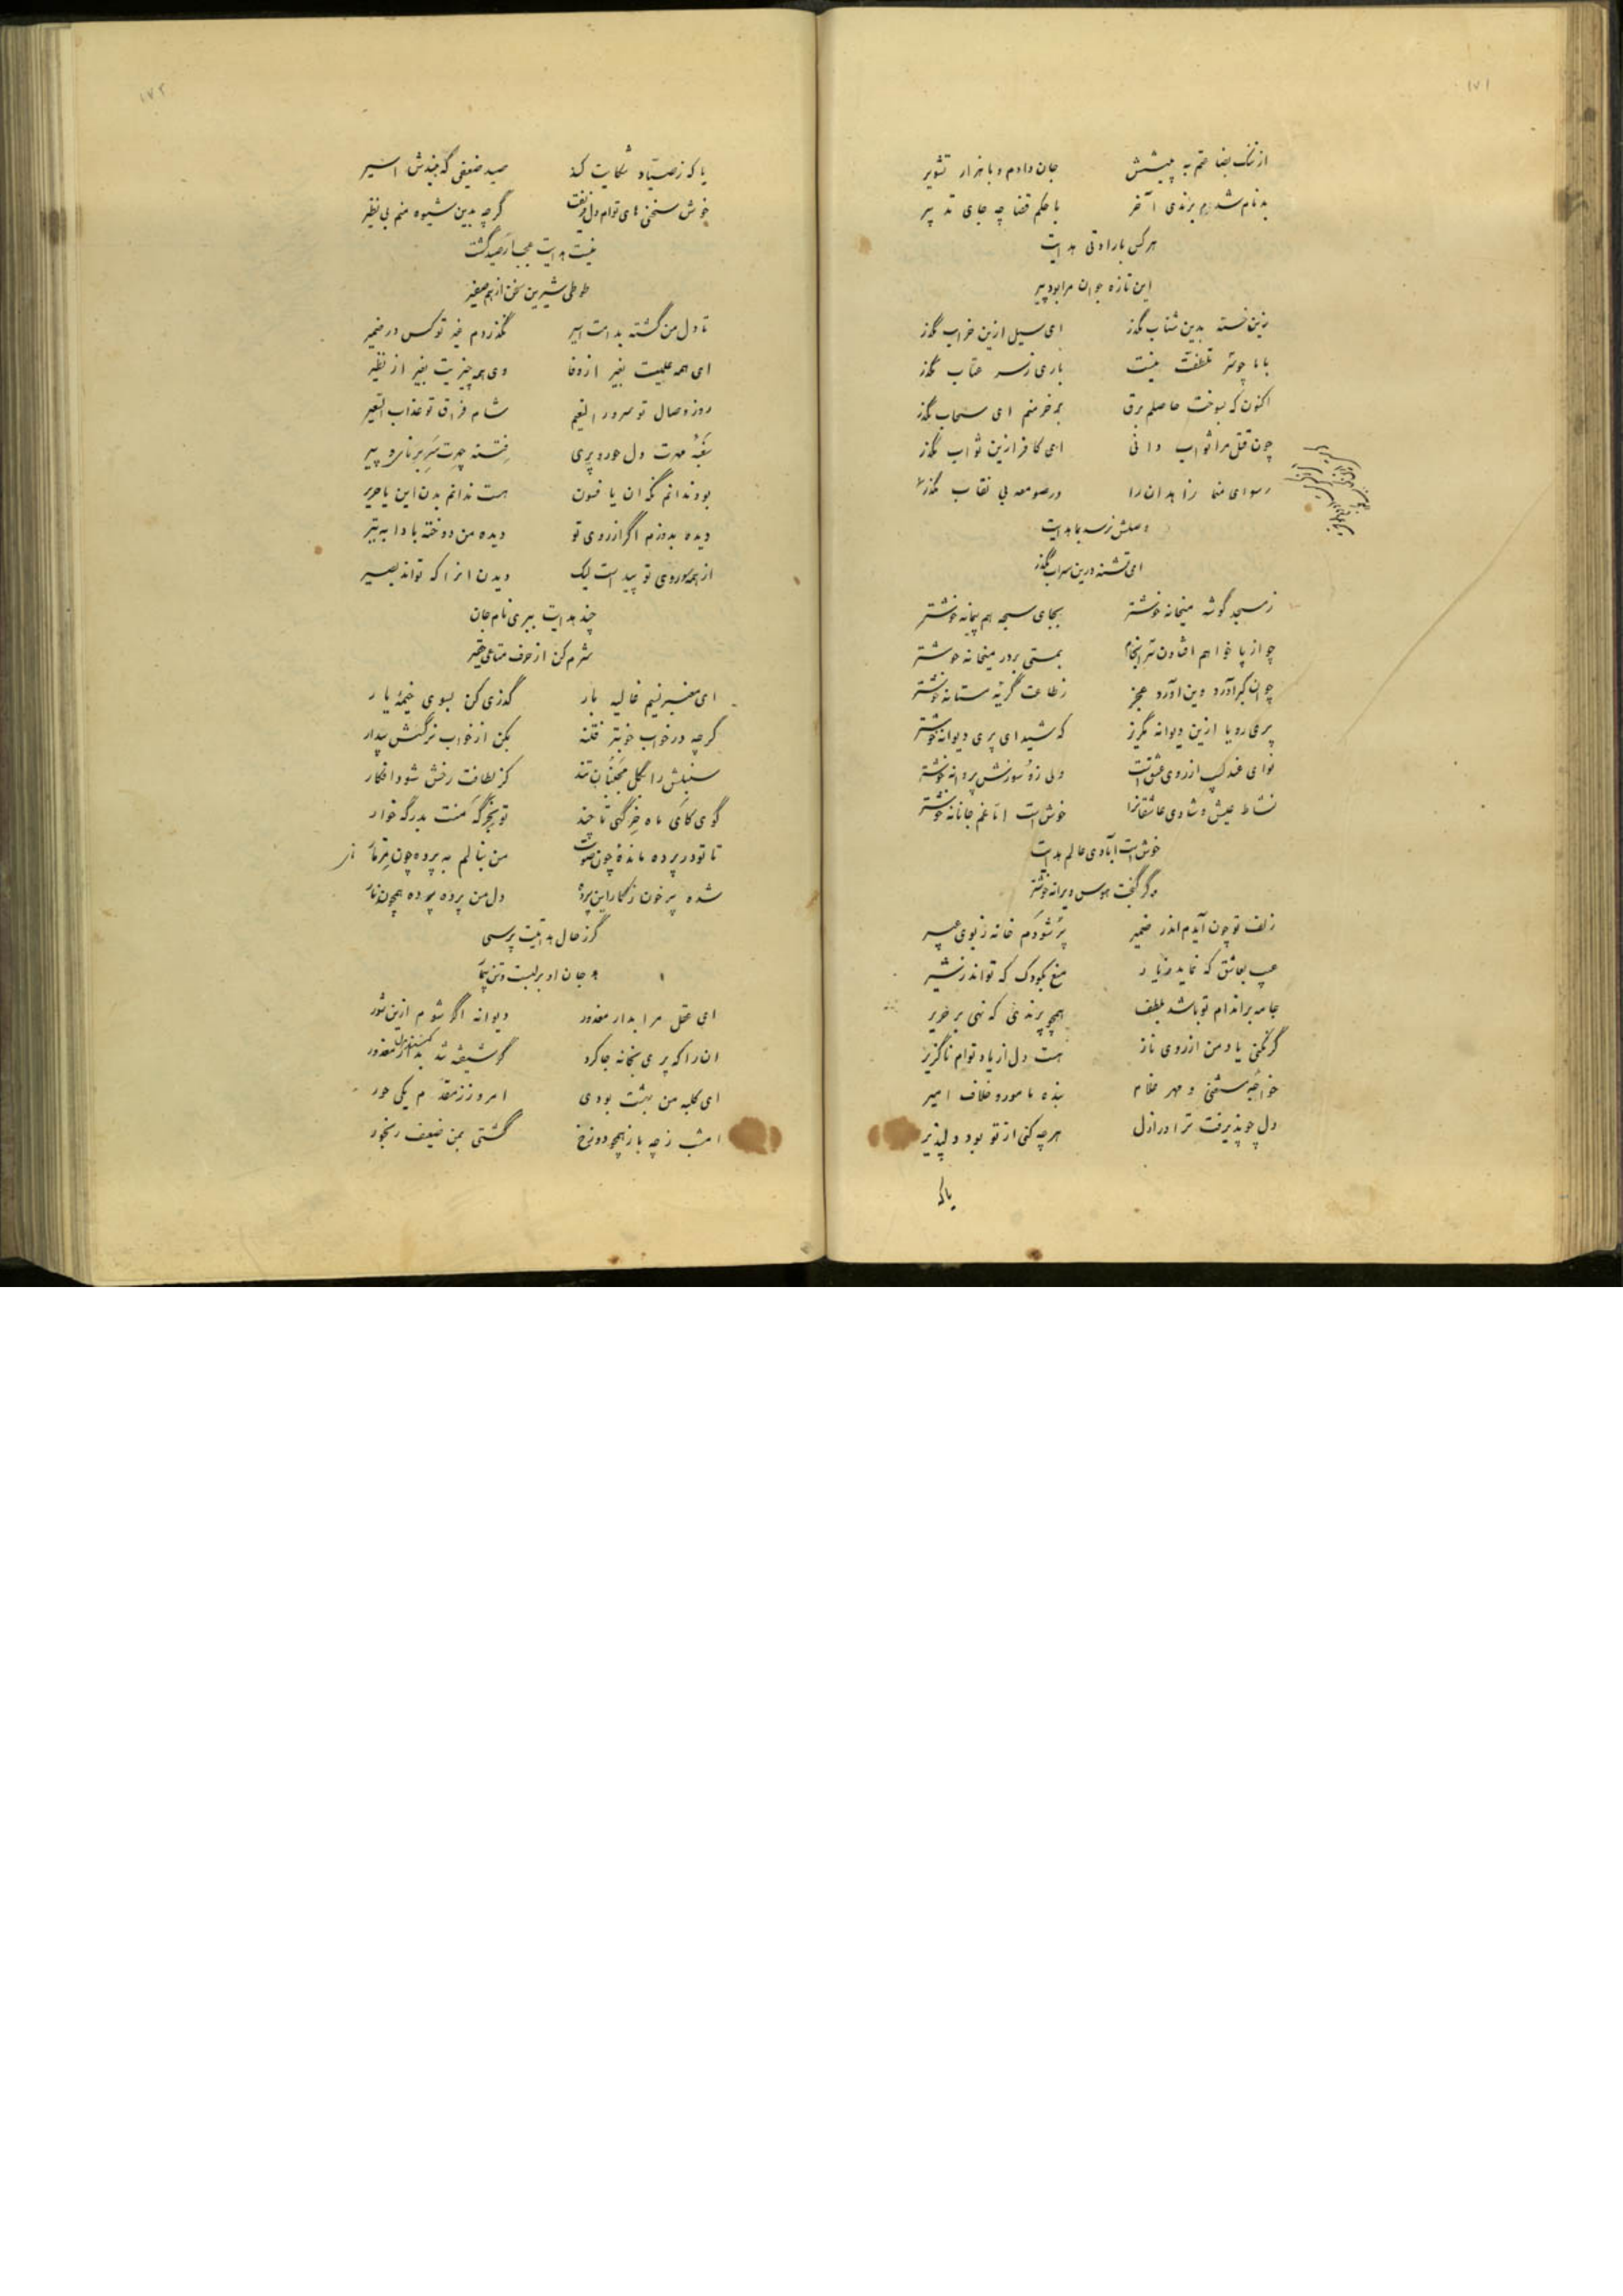 ۱۷۱
از ننگ بضاعتم به پیشش جان دادم و با هزار تشویر
بدنام شدم برندی آخر با حکم قضا چه جای تدبیر
هر کس بارادتی هدایت
این تازه جوان مرا بود پیر
زین خسته بدین شتاب مگذر ای سیل ازین خراب مگذر
با ما چو سر تلطفت نیست باری ز سر عتاب مگذر
اکنون که بسوخت حاصلم برق بر خرمنم ای سحاب مگذر
چون قتل مرا ثواب دانی ای کافر ازین ثواب مگذر
رسوای منما زاهدان را در صومعه بی نقاب مگذر
وصلش نرسد بما هدایت
ای تشنه درین سراب مگذر
ز مسجد گوشه میخانه خوشتر بجای سبحه هم پیمانه خوشتر
چو از پا خواهم افتادن سرانجام بمستی بر در میخانه خوشتر
چو آن کبر آورد وین آورد عجز ز طاعت گریه مستانه خوشتر
پری رویا ازین دیوانه مگریز که شیدای پری دیوانه خوشتر
نوای عندلیب از روی عشق است ولی زو سوزش پروانه خوشتر
نشاط عیش و شادی عاشقانرا خوش است اما غم جانانه خوشتر
خوش است آبادی عالم هدایت
و گر گنجت هوس ویرانه خوشتر
زلف تو چون آیدم اندر ضمیر پر شودم خانه ز بوی عبیر
عیب بعاشق که نماید ز یار منع بکودک که تواند ز شیر
جامه بر اندام تو باشد بلطف همچو پرندی که نهی بر حریر
گر نکنی یاد من از روی ناز هست دل از یاد توام ناگزیر
خواجه مستغنی و مهر غلام بنده مامور و خلاف امیر
دل چو پذیرفت ترا در ازل هرچه کنی از تو بود دلپذیر
یا که
۱۷۲
یا که ز صیاد شکایت کند صید ضعیفی که بندش اسیر
خوش سخنی های توام دل فریفت گرچه بدین شیوه منم بی نظیر
نیست هدایت عجب ار صید گشت
طوطی شیرین سخن از هم صفیر
تا دل من گشته بدامت اسیر نگذردم غیر تو کس در ضمیر
ای همه عیبیت بغیر از وفا وی همه چیزیت بغیر از نظیر
روز وصال تو سرور النعیم شام فراق تو عذاب السعیر
سغبه مهرت دل حور و پری فتنه چهرت سر برنا و پیر
بود ندانم نگه آن یا فسون هست ندانم بدن این یا حریر
دیده بدوزم اگر از روی تو دیده من دوخته بادا به تیر
از همه سو روی تو پیداست لیک دیدن آنرا که تواند بصیر
چند هدایت ببری نام جان
شرم کن از حرف متاع حقیر
ای معنبر نسیم غالیه بار گذری کن بسوی خیمه یار
گرچه در خواب خوبتر فتنه بکن از خواب نرگسش بیدار
سنبلش را بگل مجنبان تند کز لطافت رخش شود افکار
گوی کای ماه خرگهی تا چند تو بخرگه منت بدرگه خوار
تا تو در پرده مانده چون صوت من بنالم به پرده چون مزمار
شده پر خون ز کار این پرده دل من پرده پرده همچون نار
گر ز حال هدایتت پرسی
جان او بر لبست و تن بیمار
ای عقل مرا بدار معذور دیوانه اگر شوم ازین شور
آنرا که پری بخانه جا کرد گر شیفته شد معذور
ای کلبه من بهشت بودی امروز ز مقدم یکی حور
امشب ز چه باز همچو دوزخ گشتی بمن ضعیف رنجور